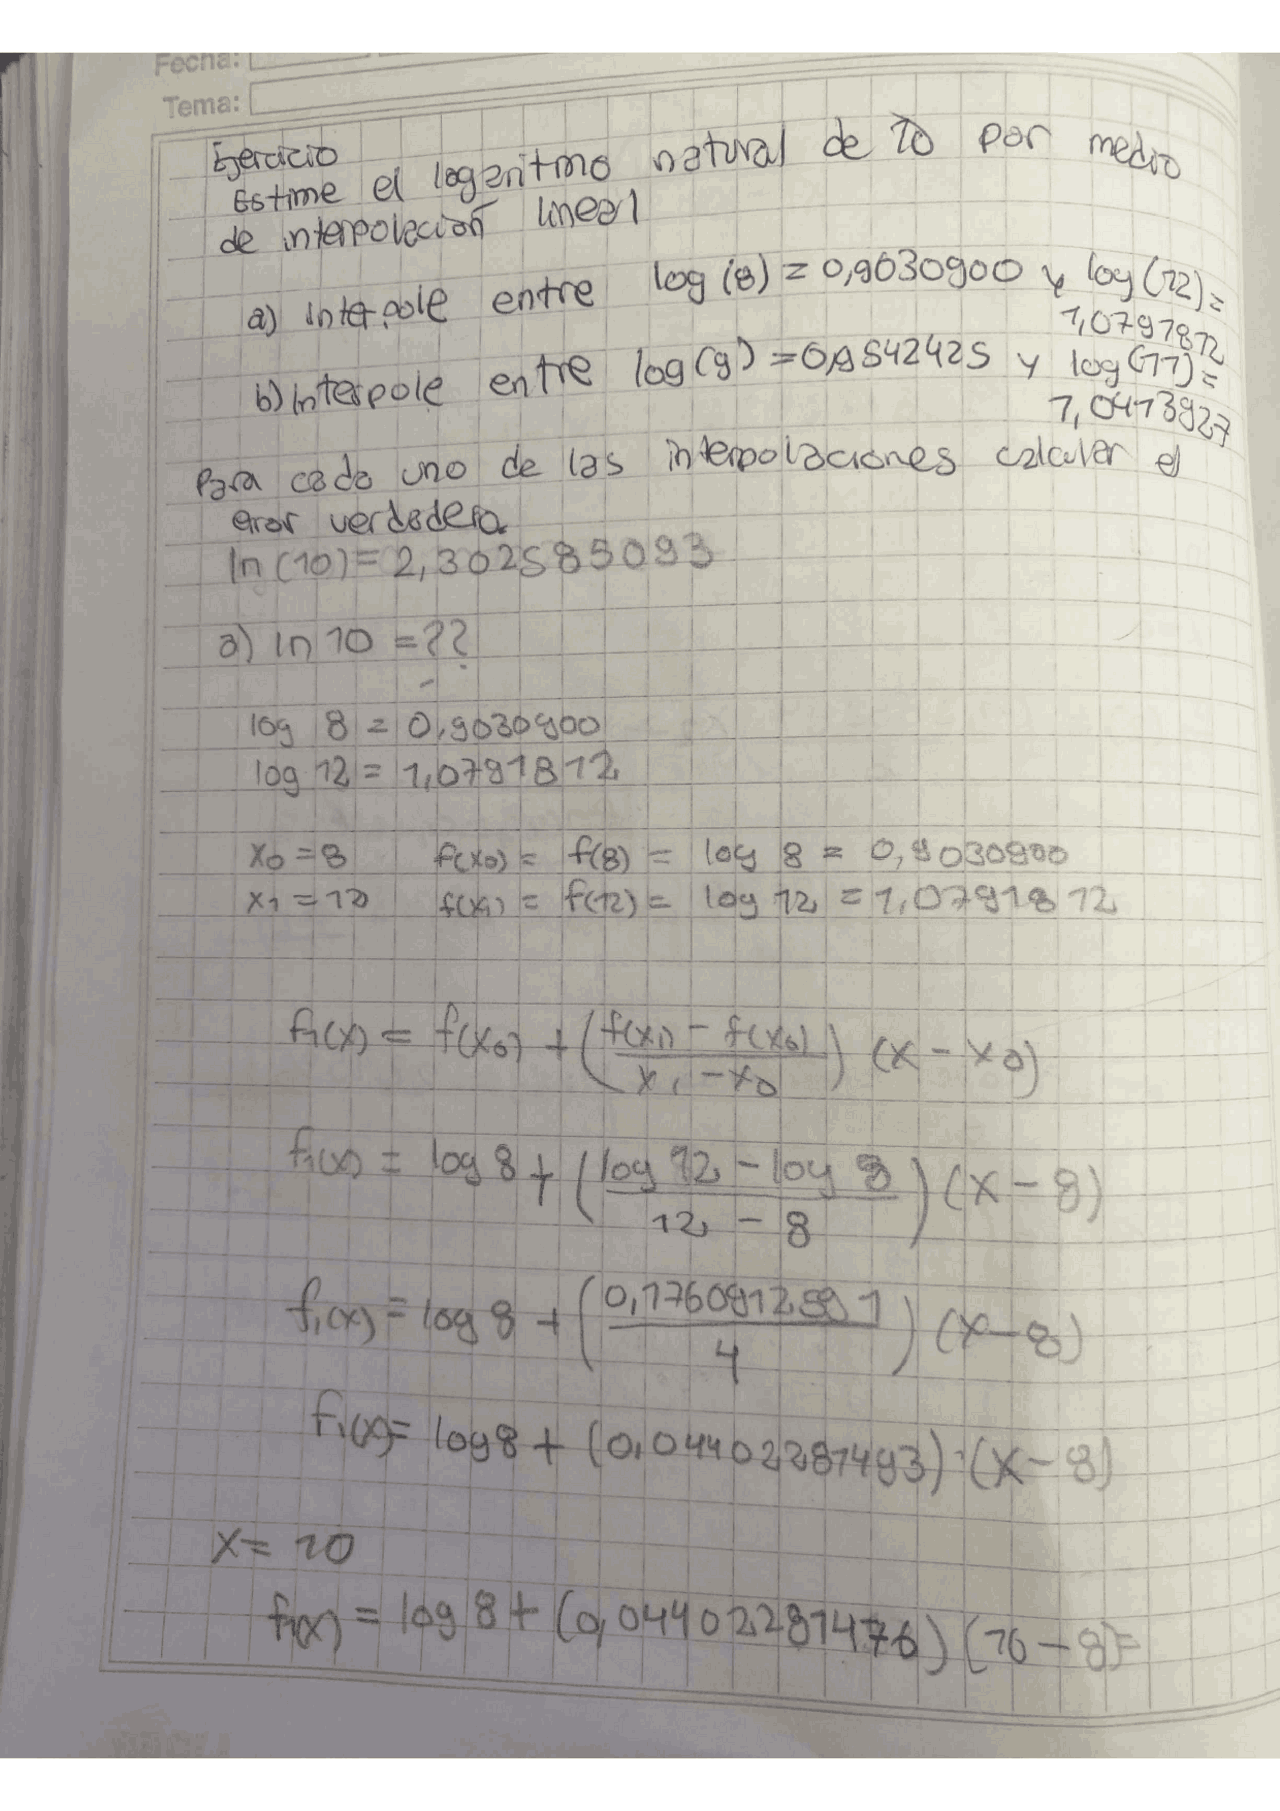 Fecha:
Tema:
Ejercicio
Estime el logaritmo natural de 10 por medio
de interpolación lineal
a) Interpole entre log (8) = 0,9030900 y log (12) =
1,0791812
b) Interpole entre log (9) = 0,9542425 y log (11) =
1,0413927
Para cada uno de las interpolaciones calcular el
error verdadero.
ln (10) = 2,302585093
a) ln 10 = ??
log 8 = 0,9030900
log 12 = 1,0791812
x0 = 8 f(x0) = f(8) = log 8 = 0,9030900
x1 = 12 f(x1) = f(12) = log 12 = 1,0791812
f1(x) = f(x0) + (f(x1) - f(x0) / x1 - x0) (x - x0)
f1(x) = log 8 + (log 12 - log 8 / 12 - 8) (x - 8)
f1(x) = log 8 + (0,1760912591 / 4) (x - 8)
f1(x) = log 8 + (0,04402281493) · (x - 8)
x = 10
f1(x) = log 8 + (0,04402281476) (10 - 8) =